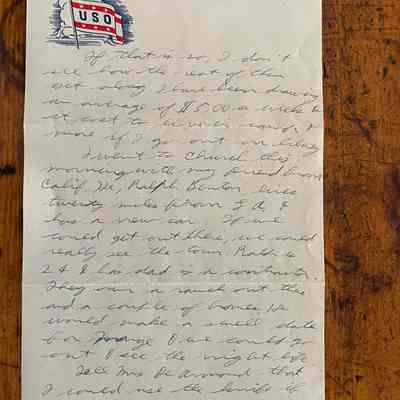 USO
If that is so, I don't
see how the rest of them
get along. I have been drawing
an average of $5.00 a week &
it cost to live in camp &
more if I go out on liberty
I went to Church this
morning with my friend from
Calif. He, Ralph Benton lives
twenty miles from L A &
has a new car. If we
could get out there, we could
really see the town. Ralph is
24 & his dad is a contractor.
They own a ranch out there
and a couple of homes. He
would make a swell date
for Marge & we could go
out & see the night life
Tell Mrs De Armond that
I could use the knife if